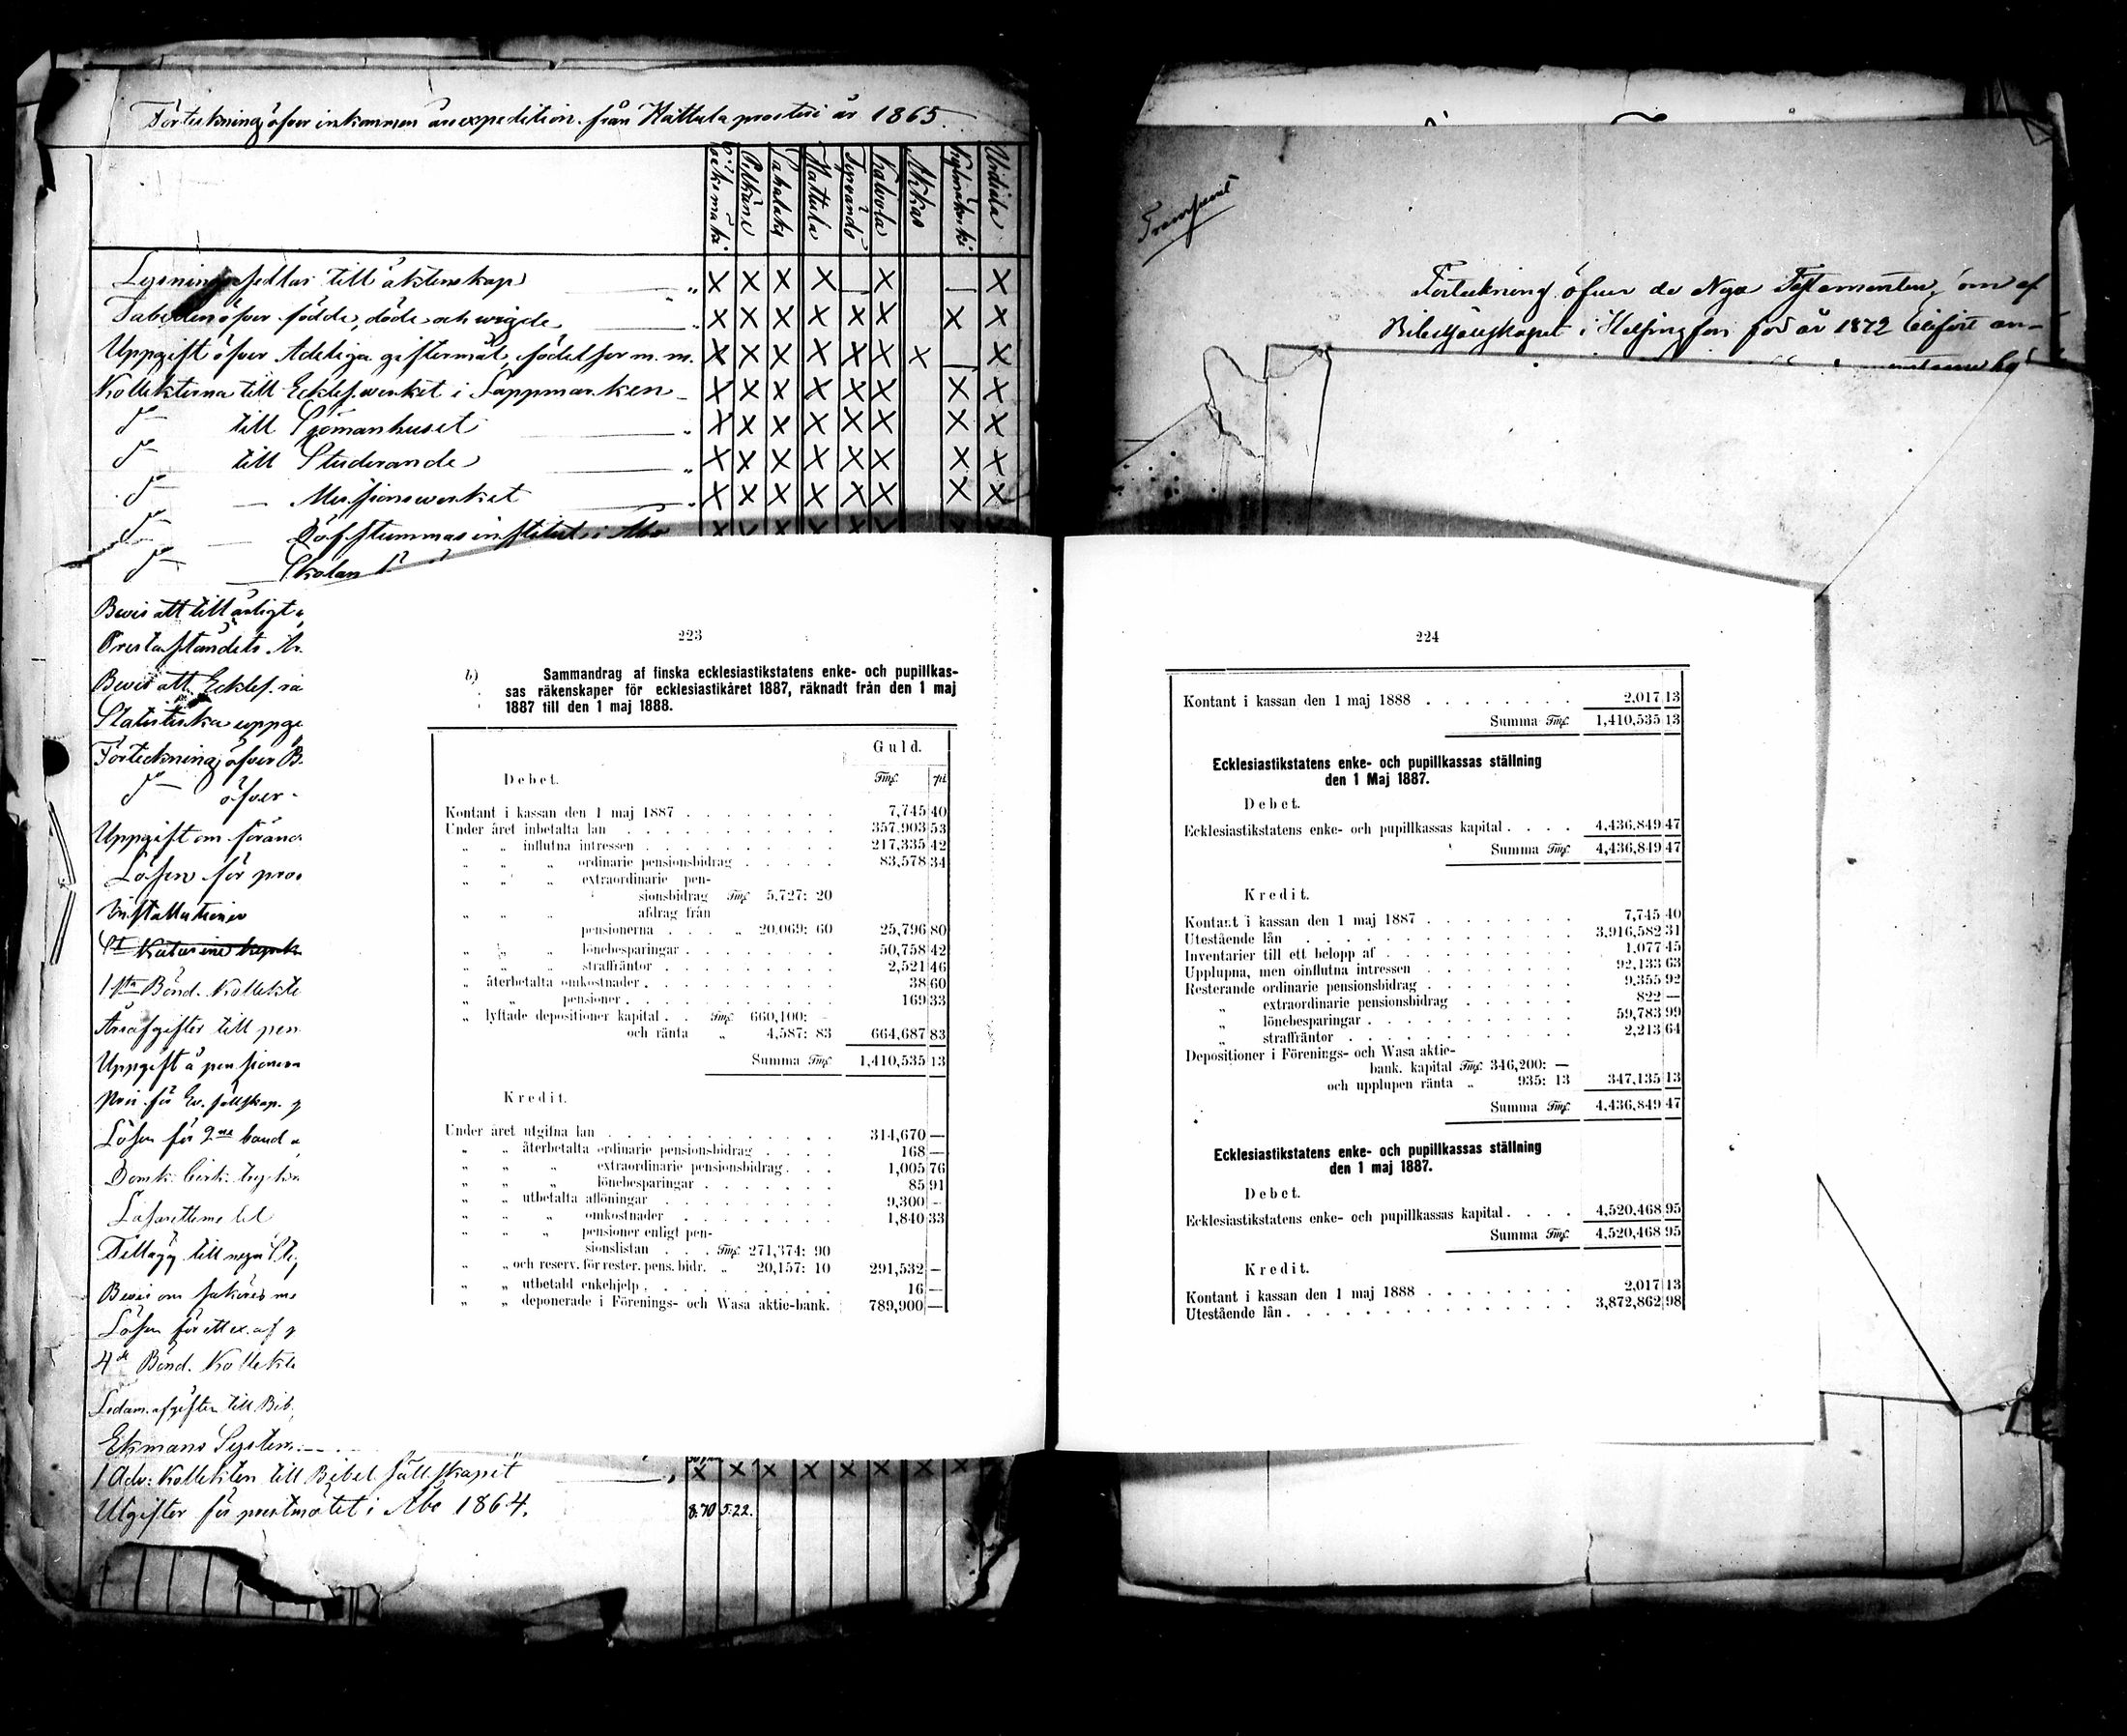 Förteckning öfver inkommen årsexpedition från Hattula prosteri år 1865.
Pelkäne Sahalaks Hattula Tyrvändö Kalvola Akkas Kylmäkoski Urdiala
Lysningssedlar till äktenskap
Tabellen öfver födde, döde och wigde
Uppgift öfver Adeliga giftermål, födelser m. m.
Kollekterna till Ecklef. werket i Lappmarken
till Sjömanhuset
till Studerande
Missionswerket
Döfstummas institut i Åbo
Skolan
Bevis att till
Prestaståndets
Bevis att Ecklef.
Statistiska uppge
Förteckning öfver B.
öfver
Uppgift om föränd
Lösen för pros
Installationer
St Katarine
1sta Bönd. Kollekte
Årsafgifter till pen
Uppgift å pensionera
Pris för Ev. sällskap.
Lösen för 2ne band
Domk.
Lasaretterne
Tillägg till
Bevis om
Lösen för ett ex. af
4de Bönd. Kollekte
Ledam. afgifter till Bib.
Ekmans System
1 Adv: Kollekten till Bibel sällskapet
Utgifter för prestmötet i Åbo 1864. 8:70 5:22.
223
b) Sammandrag af finska ecklesiastikstatens enke- och pupillkas-
sas räkenskaper för ecklesiastikåret 1887, räknadt från den 1 maj
1887 till den 1 maj 1888.
Guld.
Debet. Fmf. pi
Kontant i kassan den 1 maj 1887 . . . . . . . . 7,745 40
Under året inbetalta lan . . . . . . . . . . . 357,903 53
„ „ influtna intressen . . . . . . . . . . 217,335 42
„ „ „ ordinarie pensionsbidrag . . . . . 83,578 34
„ „ „ extraordinarie pen-
sionsbidrag Fmf. 5,727: 20
„ „ „ afdrag från
pensionerna . . . „ 20,069: 60 25,796 80
„ „ „ lönebesparingar . . . . . . . . 50,758 42
„ „ „ straffräntor . . . . . . . . . 2,521 46
„ återbetalta omkostnader . . . . . . . . . . 38 60
„ „ pensioner . . . . . . . . . . . 169 33
„ lyftade depositioner kapital . . Fmf. 660,100: –
och ränta „ 4,587: 83 664,687 83
Summa Fmf. 1,410,535 13
Kredit.
Under året utgifna lan . . . . . . . . . . . . 314,670 —
„ „ återbetalta ordinarie pensionsbidrag . . . . 168 —
„ „ „ extraordinarie pensionsbidrag . . . 1,005 76
„ „ „ lönebesparingar . . . . . . . 85 91
„ „ utbetalta aflöningar . . . . . . . . . 9,300 —
„ „ „ omkostnader . . . . . . . . 1,840 33
„ „ „ pensioner enligt pen-
sionslistan . . . Fmf. 271,374: 90
„ „ och reserv. för rester. pens. bidr. „ 20,157: 10 291,532 —
„ „ utbetald enkehjelp . . . . . . . . . . 16 —
„ „ deponerade i Förenings- och Wasa aktie-bank. 789,900 —
Framhval
Förteckning öfver de Nya Testamenten, som af
Bibelsällskapet i Helsingfors för år 1872 blifvit an-
224
Kontant i kassan den 1 maj 1888 . . . . . . . . 2,017 13
Summa Fmf. 1,410,535 13
Ecklesiastikstatens enke- och pupillkassas ställning
den 1 Maj 1887.
Debet.
Ecklesiastikstatens enke- och pupillkassas kapital . . . . 4,436,849 47
Summa Fmf. 4,436,849 47
Kredit.
Kontant i kassan den 1 maj 1887 . . . . . . . . 7,745 40
Utestående lån . . . . . . . . . . . . . . . 3,916,582 31
Inventarier till ett belopp af . . . . . . . . . . 1,077 45
Upplupna, men oinflutna intressen . . . . . . . . 92,133 63
Resterande ordinarie pensionsbidrag . . . . . . . . 9,355 92
„ extraordinarie pensionsbidrag . . . . . . 822 —
„ lönebesparingar . . . . . . . . . . . 59,783 99
„ straffräntor . . . . . . . . . . . . 2,213 64
Depositioner i Förenings- och Wasa aktie-
bank. kapital Fmf. 346,200: —
och upplupen ränta „ 935: 13 347,135 13
Summa Fmf. 4,436,849 47
Ecklesiastikstatens enke- och pupillkassas ställning
den 1 maj 1887.
Debet.
Ecklesiastikstatens enke- och pupillkassas kapital . . . . 4,520,468 95
Summa Fmf. 4,520,468 95
Kredit.
Kontant i kassan den 1 maj 1888 . . . . . . . . 2,017 13
Utestående lån . . . . . . . . . . . . . . . 3,872,862 98